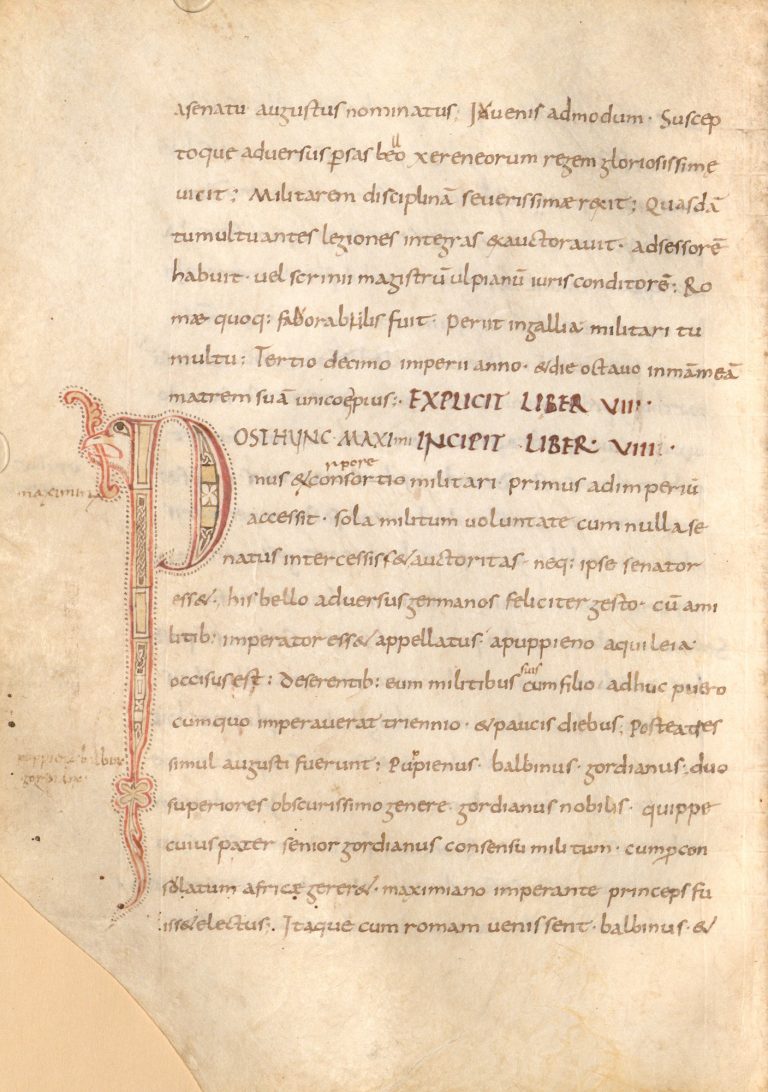 asenatu augustus nominatus; Iuvenis admodum · Suscep
toque adversus psas bello xereneorum regem gloriosissime
vicit; Militarem disciplinā severissime rexit; Quasdā
tumultuantes legiones integras &auctoravit · adsessorē
habuit · vel scrinii magistrū ulpianū iuris conditorē; Ro
mæ quoq: faborabilis fuit · periit ingallia militari tu
multu; Tertio decimo imperii anno · &die octavo inmāmeā
matrem suā unicoepius; EXPLICIT LIBER VIII ·
POST HUNC · MAXImi INCIPIT · LIBER · VIIII ·
nus &consortio militari · primus adimperiū
maximin
accessit · sola militum voluntate cum nulla se
natus intercessiss& auctoritas · neq: ipse senator
ess& · his bello adversus germanos feliciter gesto · cū ami
litib: imperator ess& appellatus · apuppieno aquileia
occisus est; Deserentib: eum militibus suis cum filio adhuc puero
cumquo imperaverat triennio · & paucis diebus; Postea tres
simul augusti fuerunt; Pupienus · balbinus · gordianus; duo
superiores obscurissimo genere · gordianus nobilis · quippe
cuius pater senior gordianus consensu militum · cum pcon
solatum africæ gerer& · maximiano imperante princeps fu
iss& electus; Itaque cum romam venissent · balbinus · &